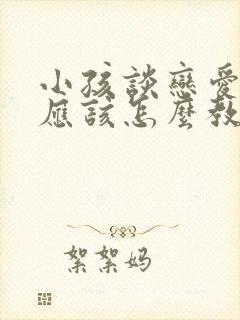 小孩談戀愛
應該怎麼教
絮絮妈